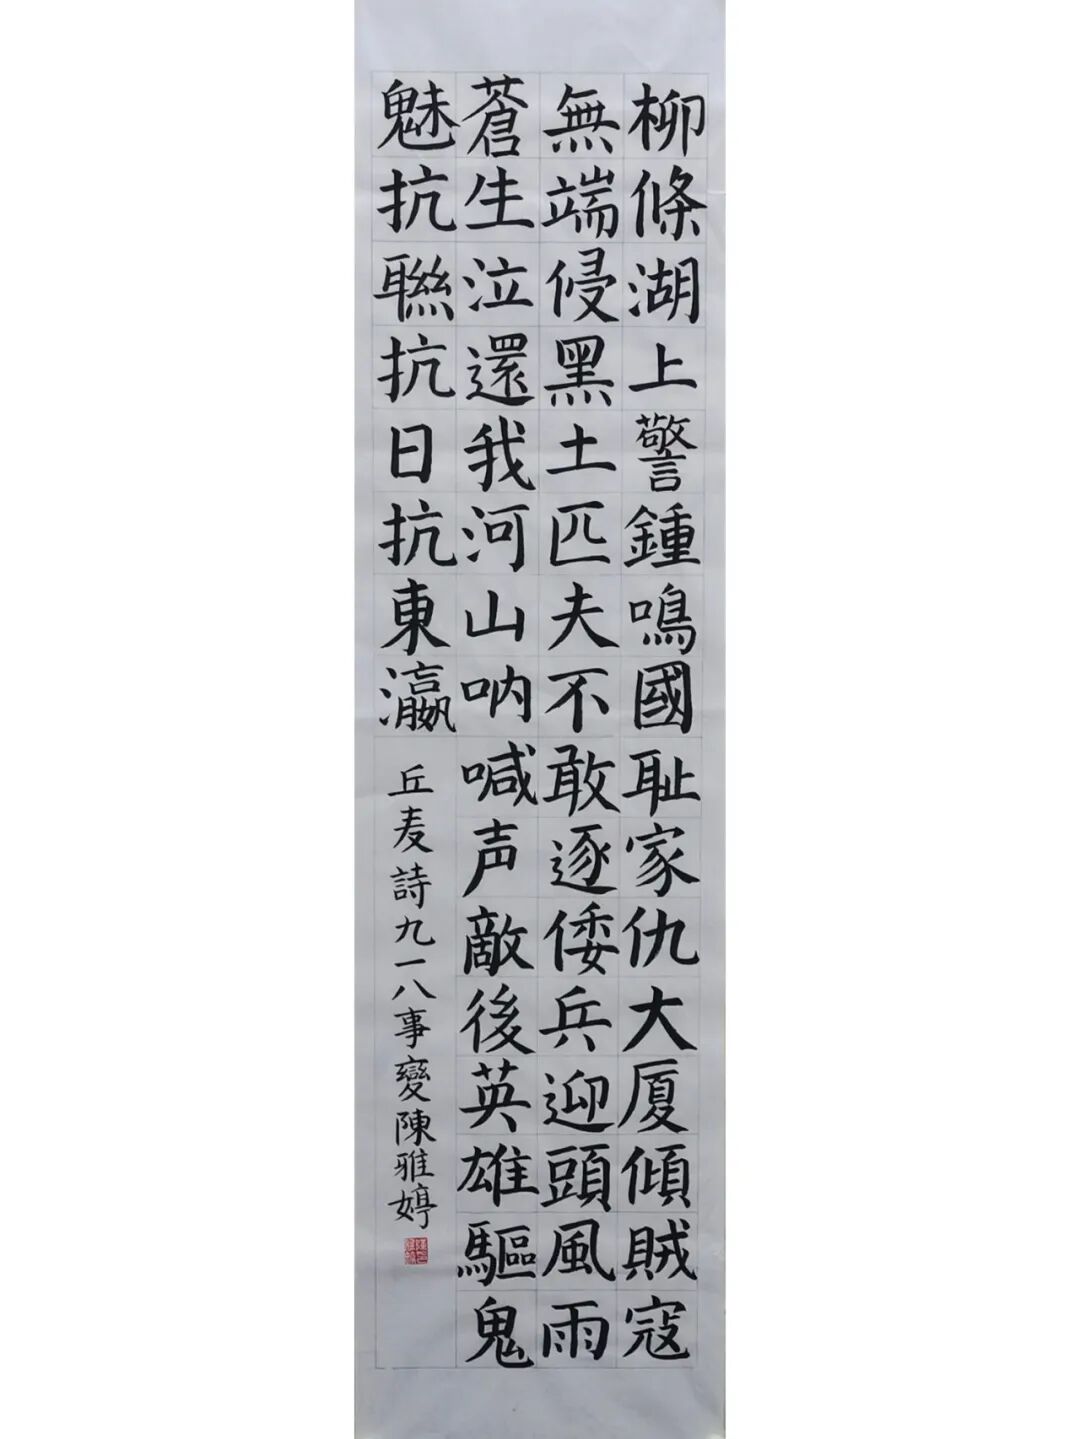 柳條湖上警鍾鳴國耻家仇大厦傾賊寇
無端侵黑土匹夫不敢逐倭兵迎頭風雨
蒼生泣還我河山呐喊声敵後英雄驅鬼
魅抗聯抗日抗東瀛
丘麦詩九一八事變陳雅婷